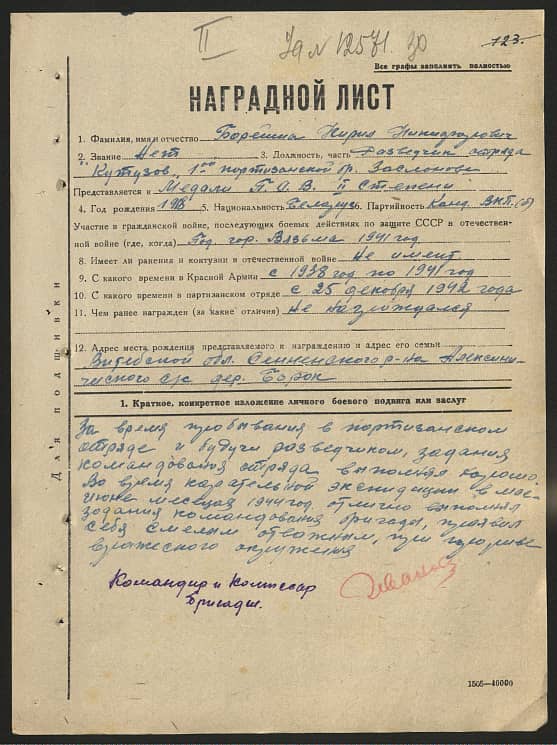 II
12571. 30
123.
Все графы заполнять полностью
НАГРАДНОЙ ЛИСТ
1. Фамилия, имя и отчество Борейша Кирил
2. Звание Нет 3. Должность, часть Разведчик отряда
"Кутузов", 1ой партизанской бр. Заслонова
Представляется к Медали П.О.В. II степени
4. Год рождения 5. Национальность Беларус 6. Партийность Канд. ВКП(б)
Участие в гражданской войне, последующих боевых действиях по защите СССР в отечествен-
ной войне (где, когда) Под гор. Вязьма 1941 год
8. Имеет ли ранения и контузии в отечественной войне Не имеит
9. С какого времени в Красной Армии с 1938 год по 1941 год
10. С какого времени в партизанском отряде с 25 декабря 1942 года
11. Чем ранее награжден (за какие отличия) Не награждался
12. Адрес места рождения представляемого к награждению и адрес его семьи
Витебской обл. Сенненского р-на Алексини-
чиского с/с дер. Борок
1. Краткое, конкретное изложение личного боевого подвига или заслуг
За время пребывания в партизанском
отряде и будучи разведчиком, задания
командования отряда выполнял хорошо.
Во время карательной экспидиции в мае-
июне месяцах 1944 год отлично выполнял
задания командования бригады, проявил
себя смелым отважным, при прорыве
вражеского окружения
Командир и Комиссар
Бригады.
Для подшивки
1505—40000